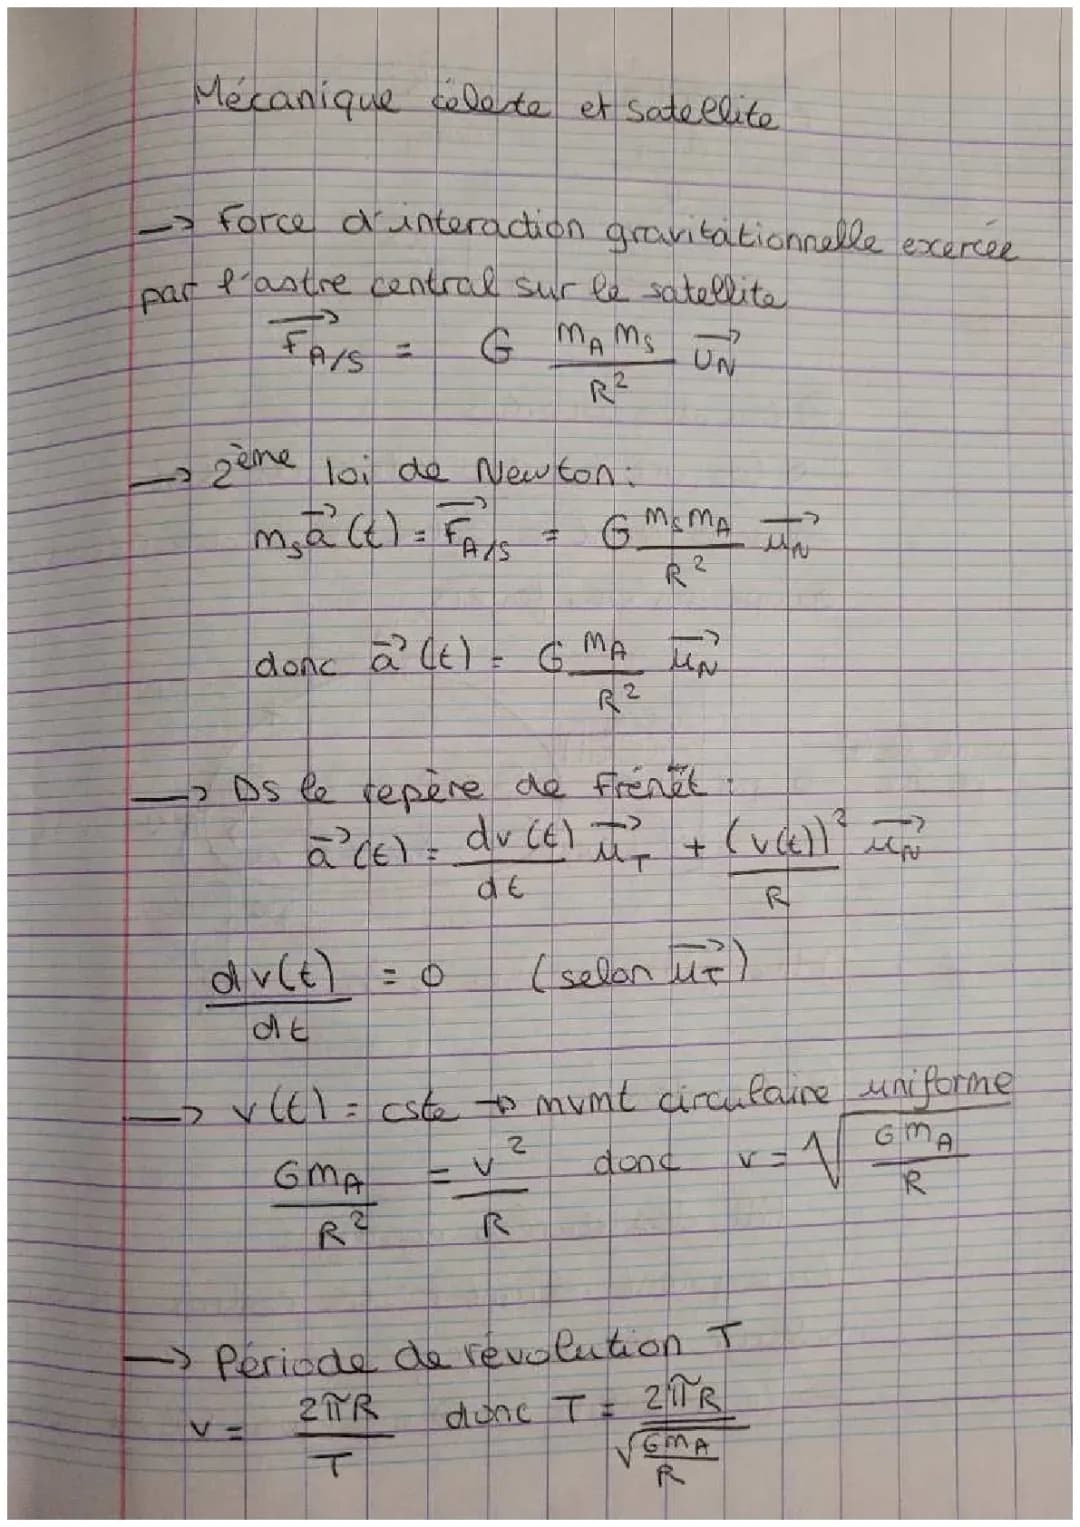 Mécanique céleste et satellite
→ Force d'interaction gravitationnelle exercée
par l'astre central sur le satellite
$\overrightarrow{F_{A/S}} = G \frac{m_A m_S}{R^2} \overrightarrow{U_N}$
→ 2ème loi de Newton:
$m_s \vec{a}(t) = \overrightarrow{F_{A/S}} = G \frac{m_S m_A}{R^2} \overrightarrow{u_N}$
donc $\vec{a}(t) = G \frac{m_A}{R^2} \overrightarrow{u_N}$
→ Ds le repère de Frénêt :
$\vec{a}(t) = \frac{dv(t)}{dt} \overrightarrow{u_T} + \frac{(v(t))^2}{R} \overrightarrow{u_N}$
$\frac{dv(t)}{dt} = 0$ (selon $\overrightarrow{u_T}$)
→ v(t) = cste → mvmt circulaire uniforme
$\frac{G m_A}{R^2} = \frac{v^2}{R}$ donc $v = \sqrt{\frac{G m_A}{R}}$
→ Période de révolution T
$v = \frac{2\pi R}{T}$ donc $T = \frac{2\pi R}{\sqrt{\frac{G m_A}{R}}}$